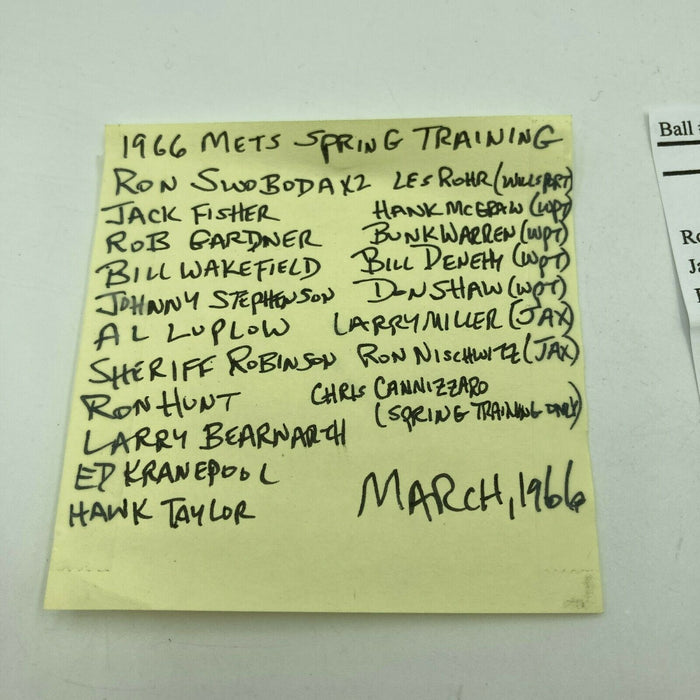 1966 METS SPRING TRAINING
RON SWOBODA X2 LES ROHR (WILLSPRT)
JACK FISHER HANK McGRAW (WPT)
ROB GARDNER BUNK WARREN (WPT)
BILL WAKEFIELD BILL DENEHY (WPT)
JOHNNY STEPHENSON DON SHAW (WPT)
AL LUPLOW LARRY MILLER (JAX)
SHERIFF ROBINSON RON NISCHWITZ (JAX)
RON HUNT CHRIS CANNIZZARO
(SPRING TRAINING ONLY)
LARRY BEARNARTH
ED KRANEPOOL
HAWK TAYLOR MARCH, 1966
Ball